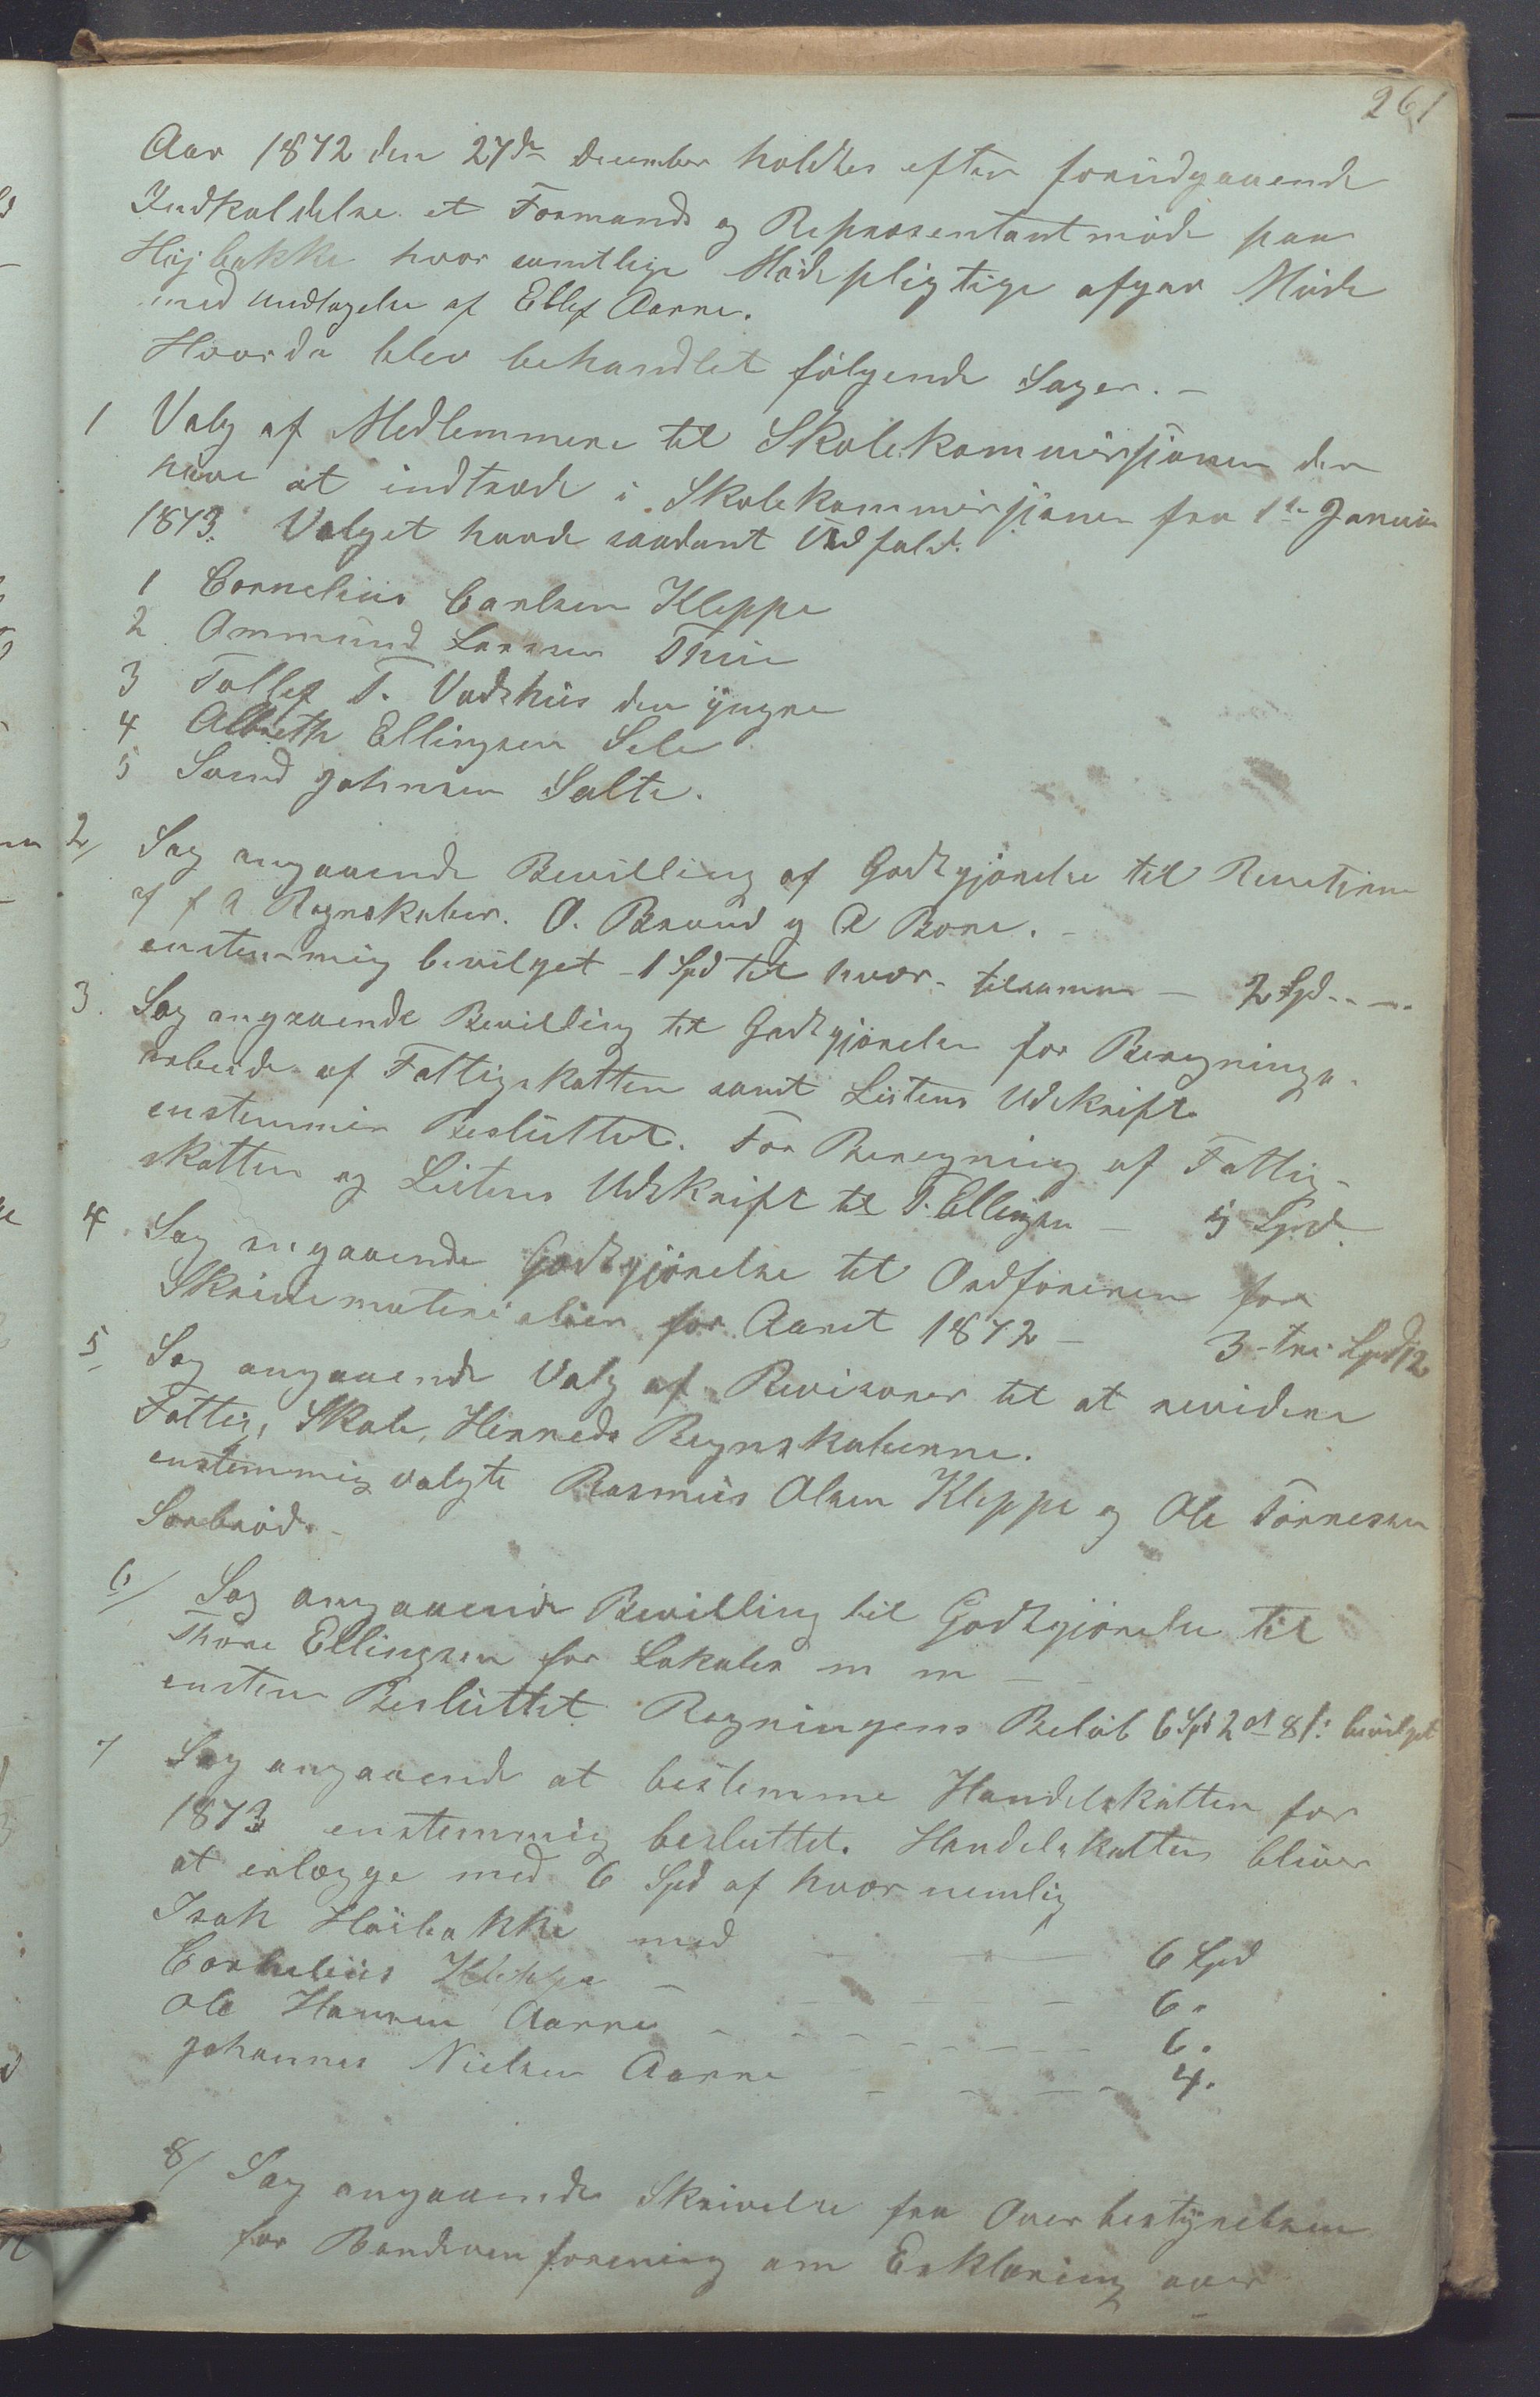 261
Aar 1872 den 27de December holdtes efter forudgaaende
Indkaldelse et Formands og Repræsentantmøde paa
Høj bakke hvor samtlige Mødepligtige afgav Møde
med Undtagelse af Ellef Aarre.
Hvorda blev behandlet følgende Sager. –
1 Valg af Medlemmere til Skolekommissjonen der
have at indtræde i Skolekommissjonen fra 1ste Januar
1873. Valget havde saadant Udfald.
1 Cornelius Carlsen Kleppe
2 Ommund Larsen Thu
3 Tollef T. Vadshus den yngre
4 Albreth Ellingsen Sele
5 Svend Johnsen Salte.
2/ Sag angaaende Bevilling af Godtgjørelse til
af f A Regnskaber. O. Braud og A Bore. –
enstemmig bevilget – 1 Spd til hvær – tilsammen – 2 Spd. – –.
3. Sag angaaende Bevilling til Godtgjørelse for Beregnings-
arbeide af Fattigskatten samt Listens Udskrift
enstemmig Besluttet. For Beregning af Fattig-
skatten og Listens Udskrift til T. Ellingsen – 5 Spd.
4 Sag angaaende Godtgjørelse til Ordføreren for
Skrivematerialier for Aaret 1872 – 3 – tre Spd
5 Sag angaaende Valg af Revisorer til at revidere
Fattig, Skole, Herreds Regnskaberne.
enstemmig valgte Rasmus Olsen Kleppe og Ole Tørresen
Sørbrød. –
6/ Sag angaaende Bevilling til Godtgjørelse til
Thore Ellingsen for Lokaler m m –
enstem Besluttet Regningens Beløb 6 Spd 2 ort 8 s: bevilget
7 Sag angaaende at bestemme Handelskatten for
1873 enstemmig besluttet. Handelskatten bliver
at erlægge med 6 Spd af hvær nemlig
Isak Høibakke med – – – 6 Spd
Cornelius Kleppe – – – 6.
Ole Hansen Aarre – – – – – 6.
Johannes Nielsen Aarre – – – – 4.
8/ Sag angaaende Skrivelse fra Overbestyrelsen
for Bondevenforening om Erklæring over